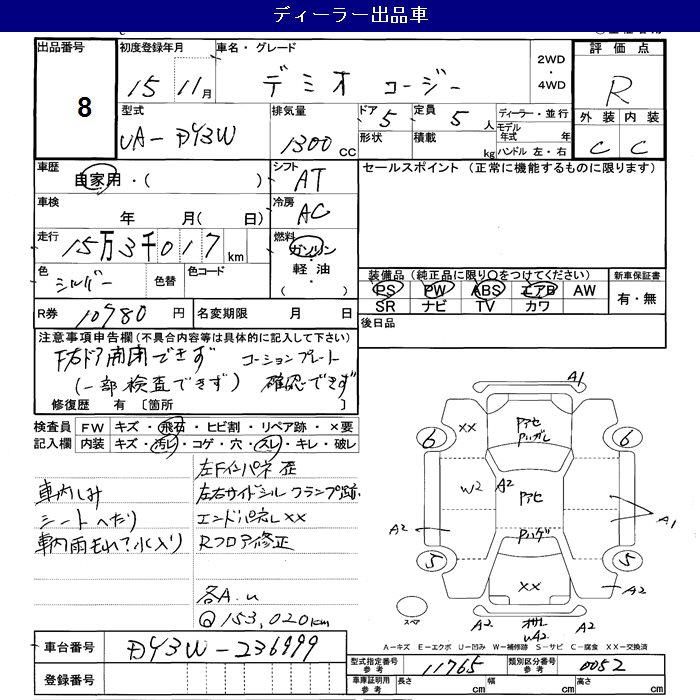 ディーラー出品車
出品番号 8
初度登録年月 15 11月
車名・グレード デミオ コージー
2WD・4WD
評価点 R
型式 UA-DY3W
排気量 1300 CC
ドア 5
形状
定員 5 人
積載 kg
ディーラー・並行
モデル年式 年
ハンドル 左・右
外装 C 内装 C
車歴 自家用・( )
シフト AT
セールスポイント (正常に機能するものに限ります)
車検 年 月( 日)
冷房 AC
走行 15万3千017 km
燃料 ガソリン・軽油・( )
色 シルバー 色替 色コード
装備品 (純正品に限り○をつけてください)
PS PW ABS エアB AW
SR ナビ TV カワ
新車保証書 有・無
R券 10780 円
名変期限 月 日
後日品
注意事項申告欄(不具合内容等は具体的に記入して下さい)
F右ドア開閉できず コーションプレート
(一部検査できず) 確認できず
修復歴 有 〔箇所 〕
検査員記入欄
FW キズ・飛石・ヒビ割・リペア跡・×要
内装 キズ・汚レ・コゲ・穴・スレ・キレ・破レ
左Fインパネ歪
車内しみ
左右サイドシル フランプ跡
シートへたり
エンドパネルXX
車内雨もれ?水入り
Rフロア修正
各A.u
@153,020km
A1
XX
アセ
ハガレ
6
6
W2
A2
アセ
A2
A1
ハゲ
5
5
XX
A2
スペア
A2
A2
A-キズ E-エクボ U-凹み W-補修跡 S-サビ C-腐食 XX-交換済
車台番号 DY3W-236999
型式指定番号 参考 11765
類別区分番号 参考 0052
登録番号
車庫証明用 参考 長さ cm 幅 cm 高さ cm